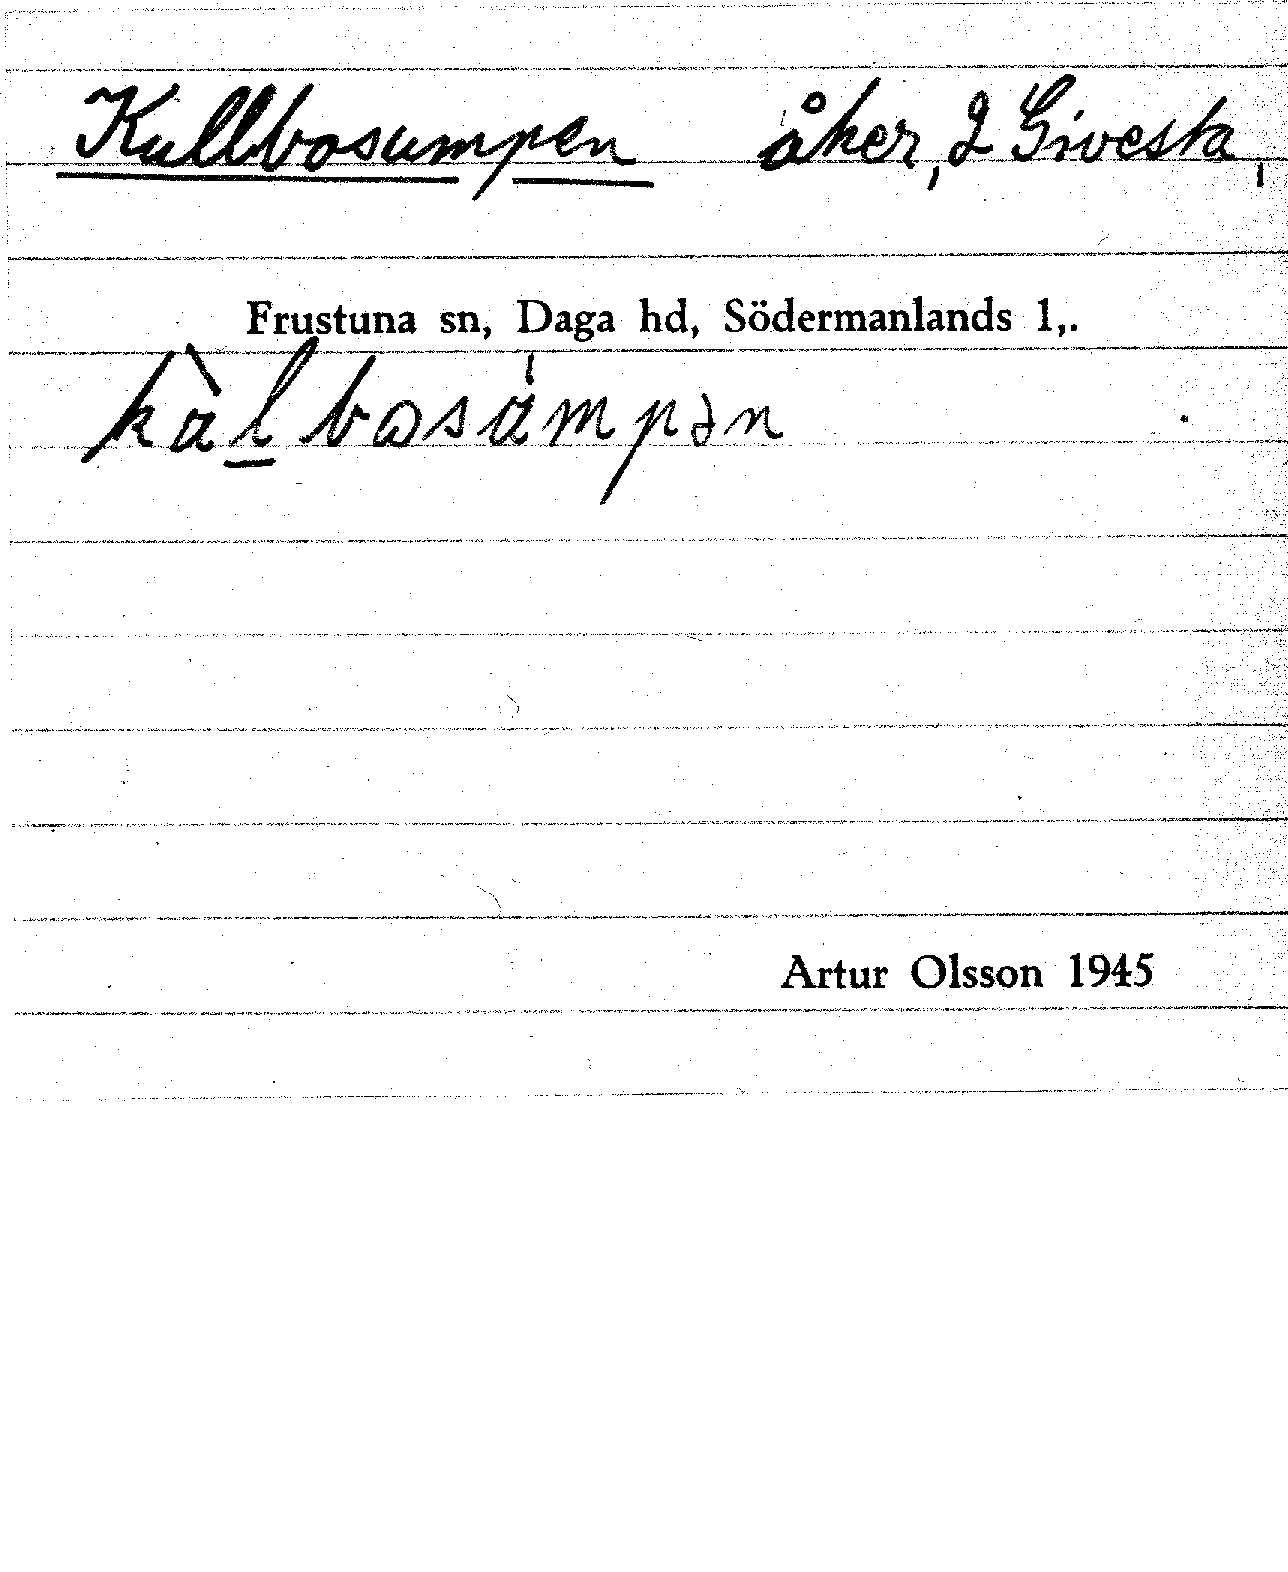 Kullbosumpen åker, 2 Sivesta,
Frustuna sn, Daga hd, Södermanlands l,.
Artur Olsson 1945